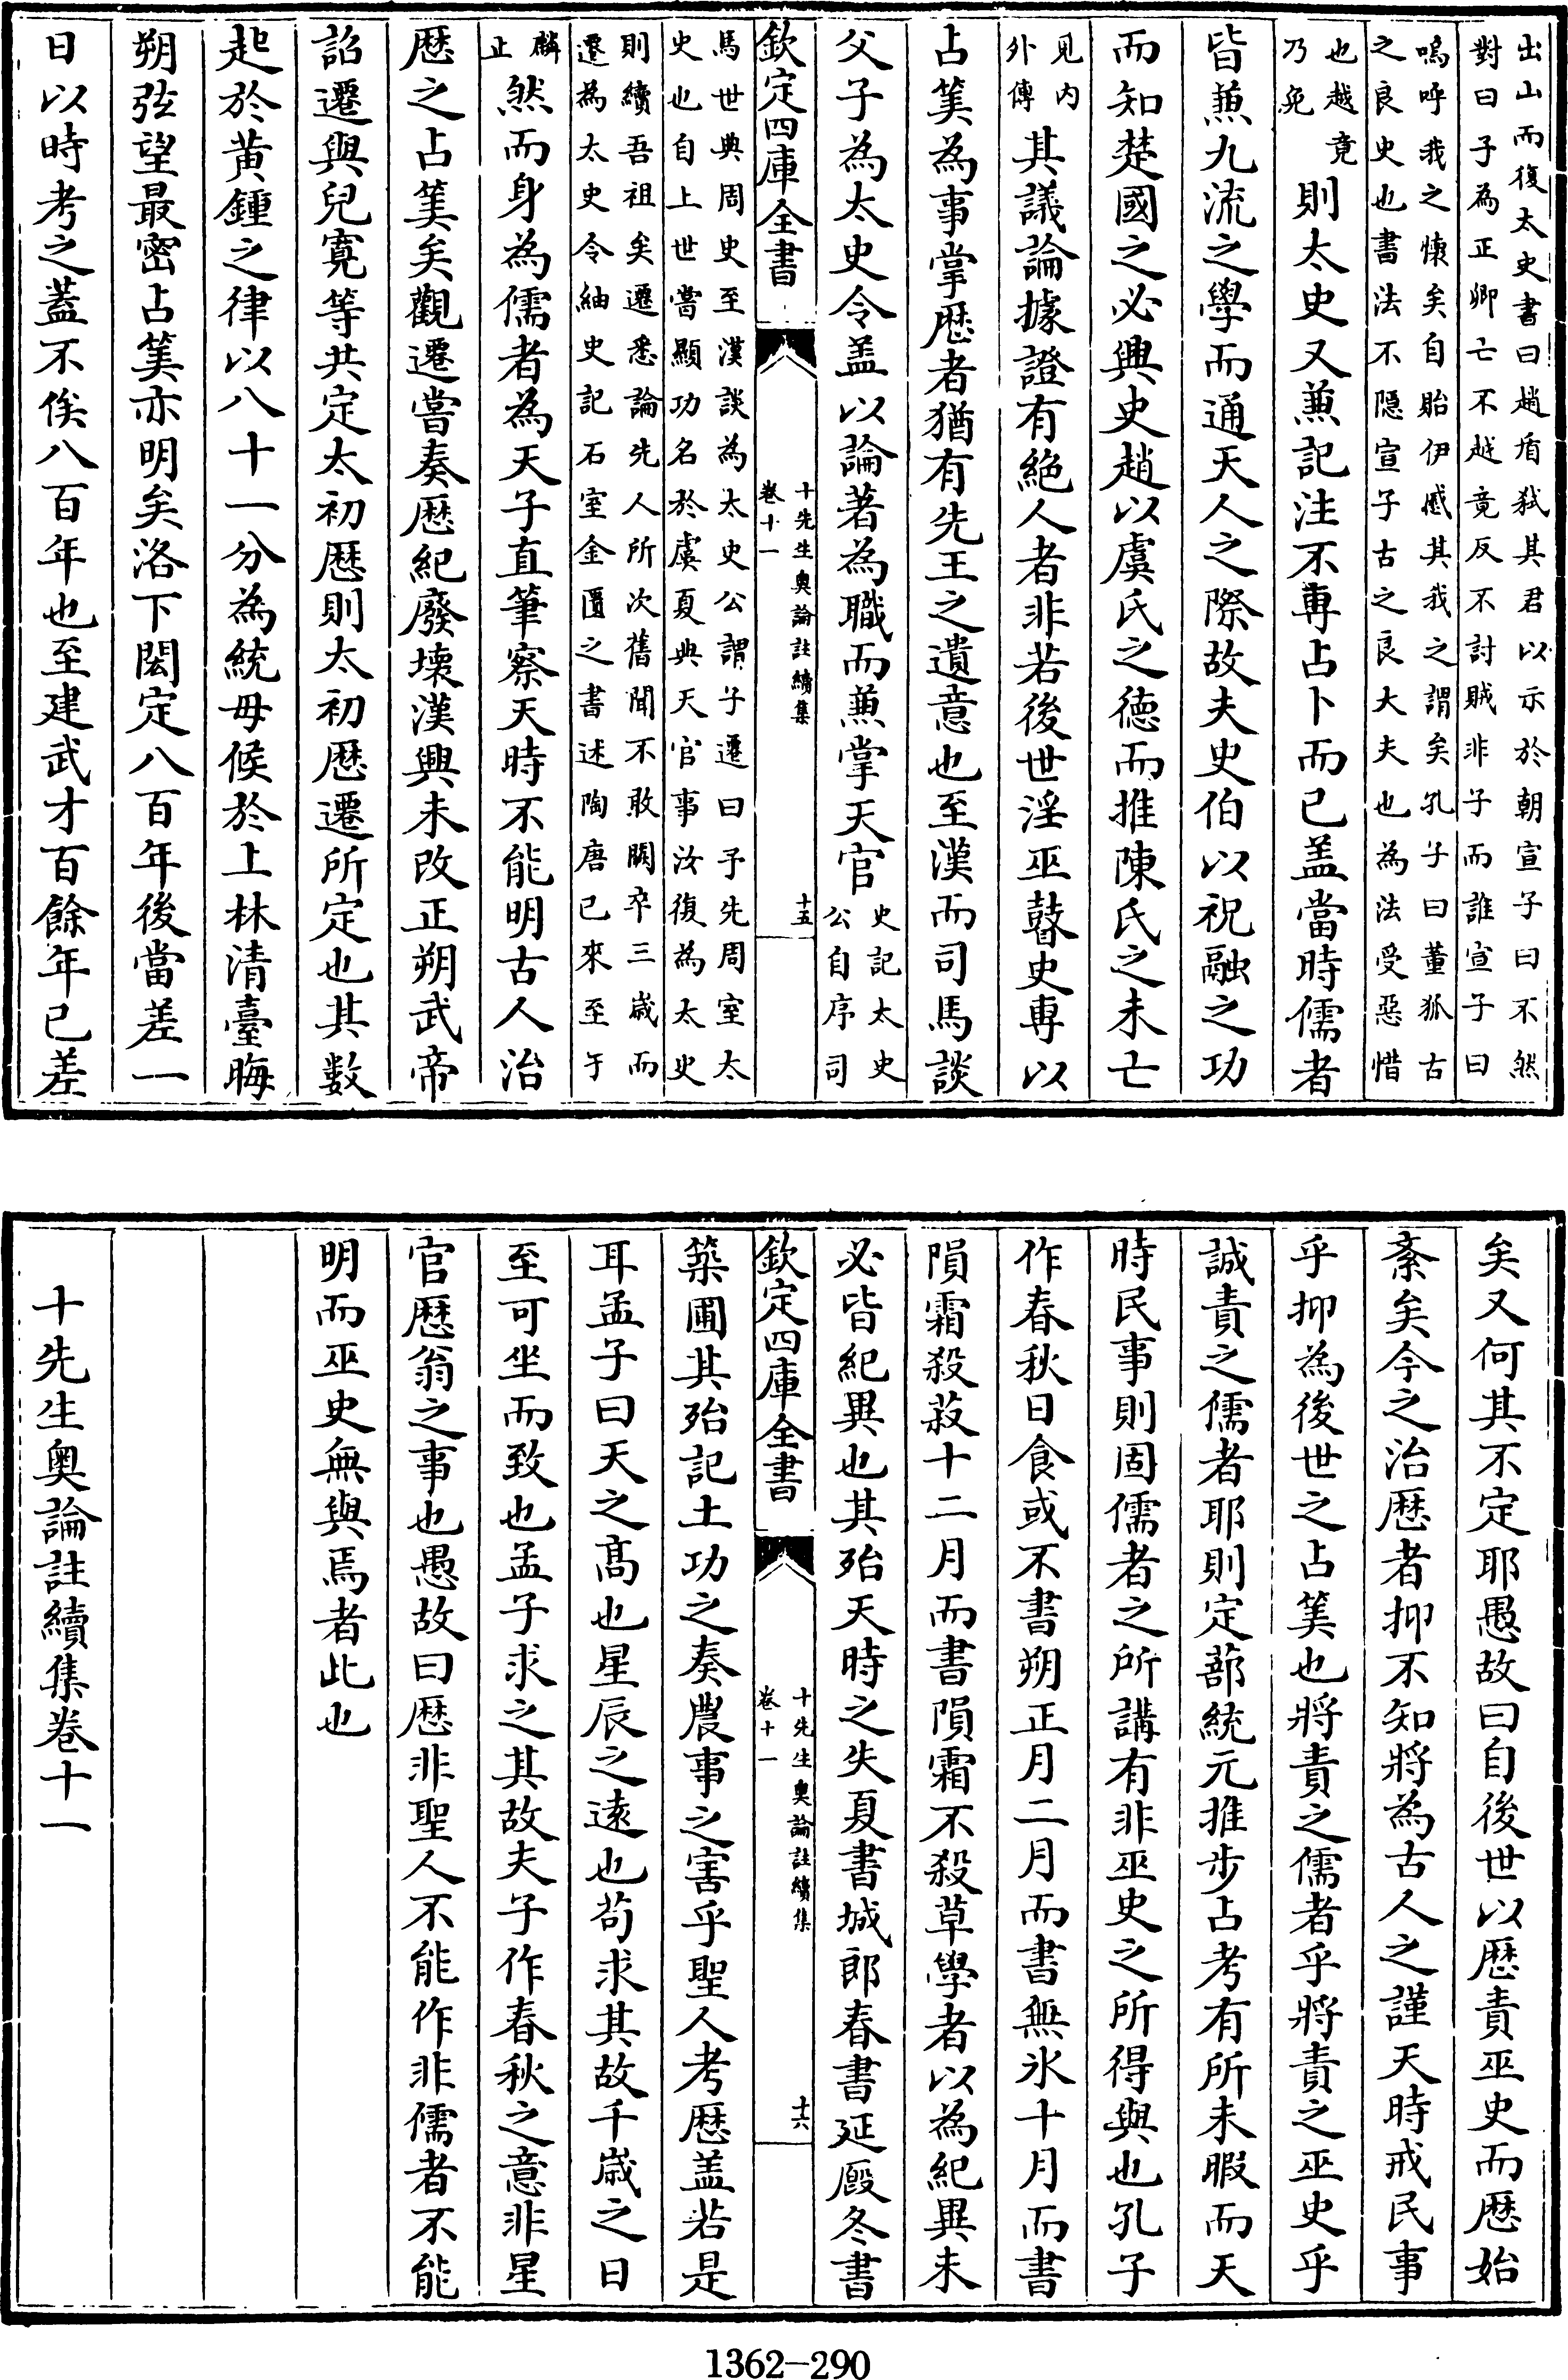 出山而復太史書曰趙盾弑其君以示於朝宣子曰不然
對曰子為正卿亡不越竟反不討賊非子而誰宣子曰
嗚呼我之懷矣自貽伊慼其我之謂矣孔子曰董狐古
之良史也書法不隱宣子古之良大夫也為法受惡惜
也越竟
乃免
則太史又兼記注不專占卜而已盖當時儒者
皆兼九流之學而通天人之際故夫史伯以祝融之功
而知楚國之必興史趙以虞氏之德而推陳氏之未亡
見内
外傳
其議論據證有絶人者非若後世淫巫瞽史專以
占筭為事掌厯者猶有先王之遺意也至漢而司馬談
父子為太史令盖以論著為職而兼掌天官
史記太史
公自序司
欽定四庫全書
十先生奥論註續集
卷十一
十五
馬世典周史至漢談為太史公謂子遷曰予先周室太
史也自上世嘗顯功名於虞夏典天官事汝復為太史
則續吾祖矣遷悉論先人所次舊聞不敢闕卒三嵗而
遷為太史令紬史記石室金匱之書述陶唐已來至于
麟
止
然而身為儒者為天子直筆察天時不能明古人治
厯之占筭矣觀遷當奏厯紀廢壊漢興未改正朔武帝
詔遷與兒寛等共定太初厯則太初厯遷所定也其數
起於黄鍾之律以八十一分為統毋候於上林清臺晦
朔弦望最密占筭亦明矣洛下閎定八百年後當差一
日以時考之蓋不俟八百年也至建武才百餘年已差
矣又何其不定耶愚故曰自後世以厯責巫史而厯始
紊矣今之治厯者抑不知將為古人之謹天時戒民事
乎抑為後世之占筭也將責之儒者乎將責之巫史乎
誠責之儒者耶則定蔀統元推步占考有所未暇而天
時民事則固儒者之所講有非巫史之所得與也孔子
作春秋日食或不書朔正月二月而書無氷十月而書
隕霜殺菽十二月而書隕霜不殺草學者以為紀異未
必皆紀異也其殆天時之失夏書城郎春書延廐冬書
欽定四庫全書
十先生奥論註續集
卷十一
十六
築圃其殆記土功之奏農事之害乎聖人考厯盖若是
耳孟子曰天之髙也星辰之逺也茍求其故千嵗之日
至可坐而致也孟子求之其故夫子作春秋之意非星
官厯翁之事也愚故曰厯非聖人不能作非儒者不能
明而巫史無與焉者此也
十先生奥論註續集卷十一
1362-290